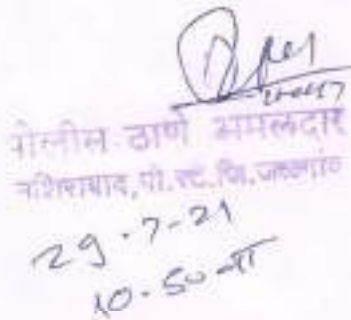 पोलीस ठाणे अमलदार
नशिराबाद, पो. स्टे. जि. जळगांव
29.7-21
10-50 वा